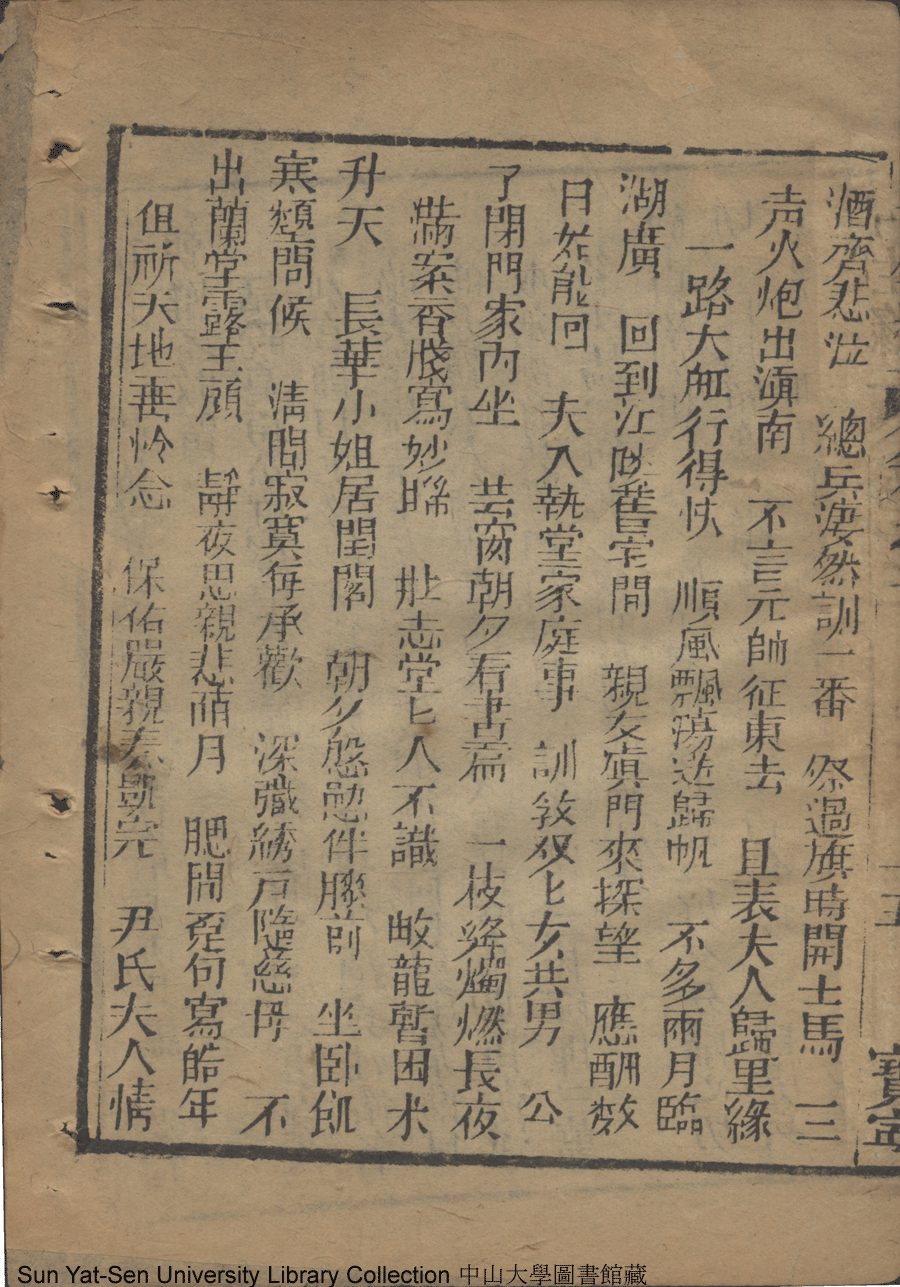 酒齊悲泣 總兵淒然訓一番 祭過旗時開士馬 三
声火炮出滇南 不言元帥征東去 且表夫人歸里緣
一路大舡行得快 順風飄蕩送歸帆 不多兩月臨
湖廣 回到江陵舊宅間 親友寘門來探望 應酬数
日始能囘 夫入執堂家庭事 訓教双匕女共男 公
了閉門家內坐 芸窗朝夕看書篇 一枝絳爥燃長夜
滿案香牋寫妙聯 壯志堂匕人不識 蛟龍暫困未
升天 長華小姐居閨閣 朝夕慇懃伴膝前 坐卧飢
寒頻問候 清閒寂寞每承歡 深藏綉戶隨慈母 不
出蘭堂露玉顔 靜夜思親悲苜月 肥間覔句寫皓年
但祈天地垂怜念 保佑嚴親奏凱完 尹氏夫人情
寳寧